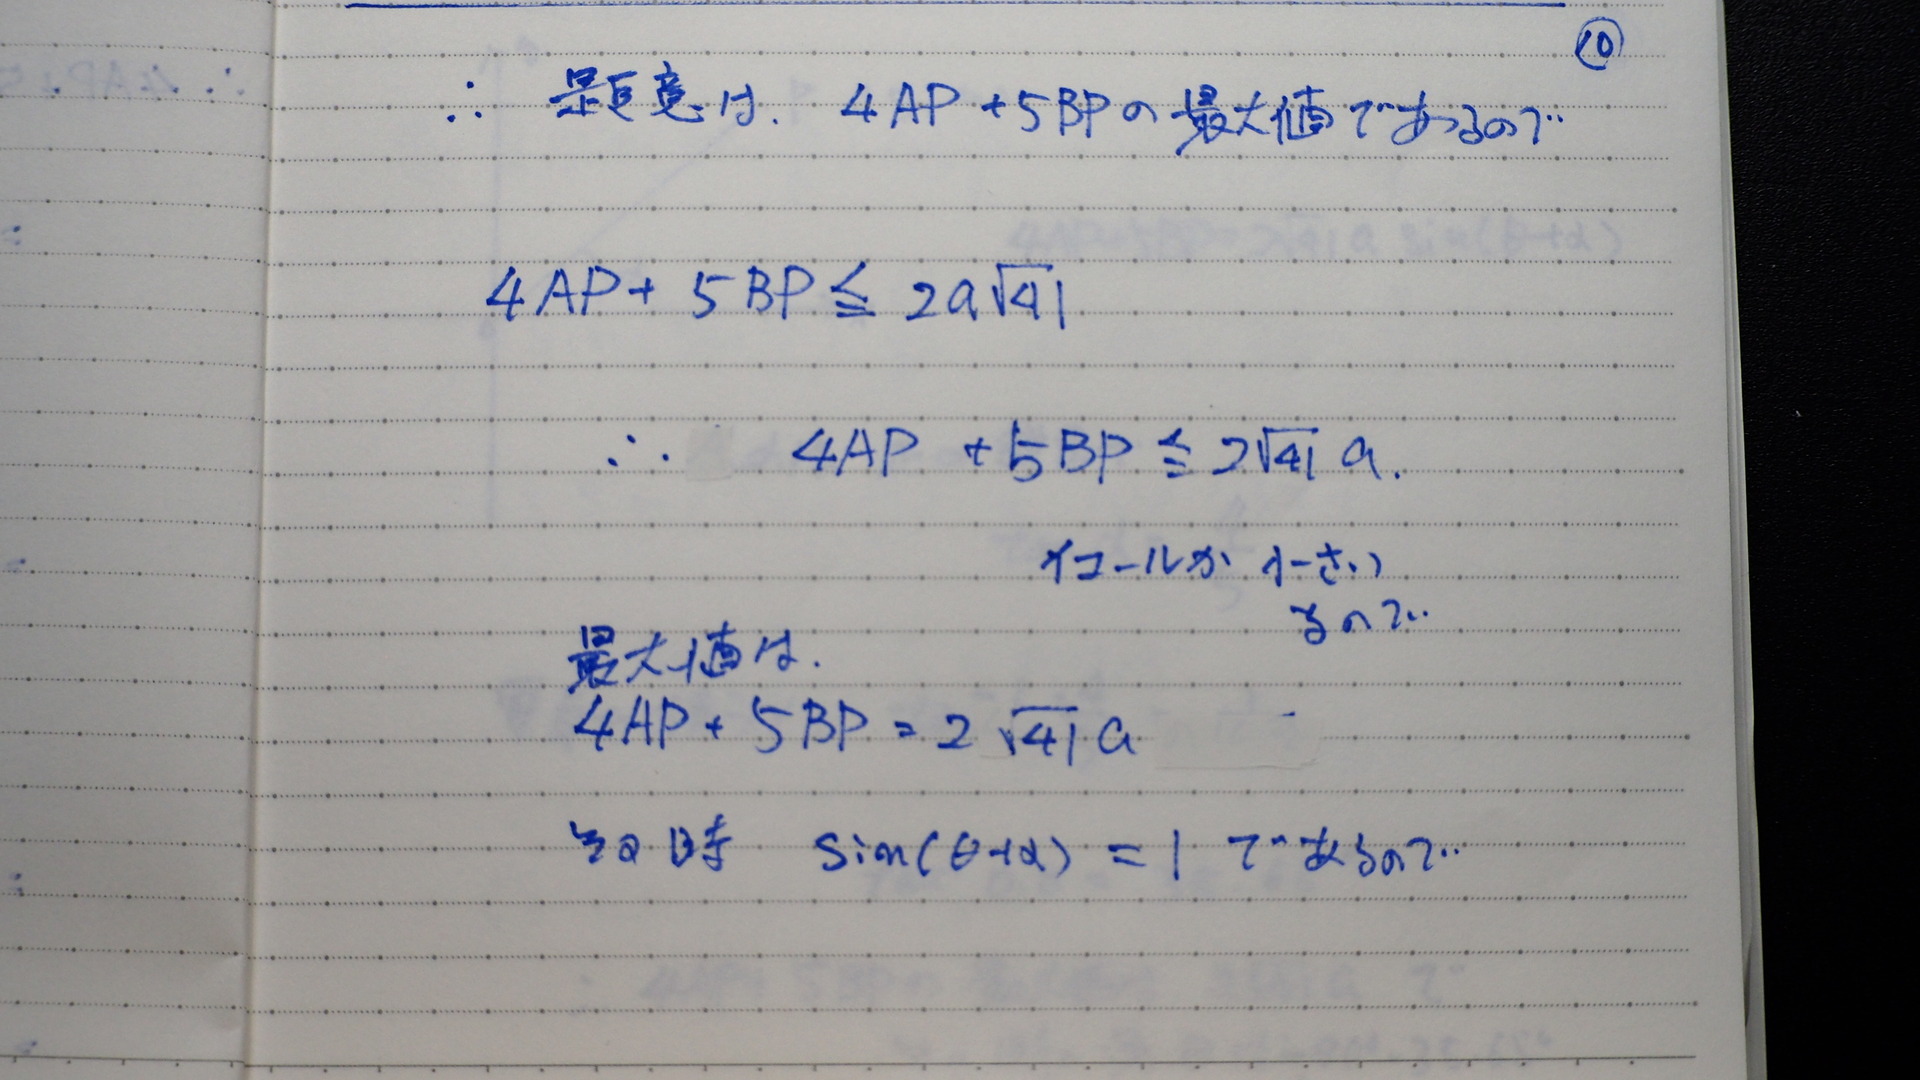 ⑩
∴ 題意は、4AP+5BPの最大値であるので
4AP+ 5BP≦ 2a√41
∴ 4AP +5BP≦2√41 a.
イコールが 小さい
るので
最大値は、
4AP+5BP=2√41a
その時 sin(θ+α)=1 であるので